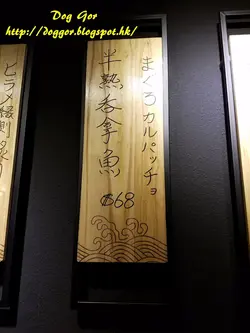 Dog Gor
http://doggor.blogspot.hk/
まぐろカルパッチョ
半熟吞拿魚
$68
ヒラメ縁側